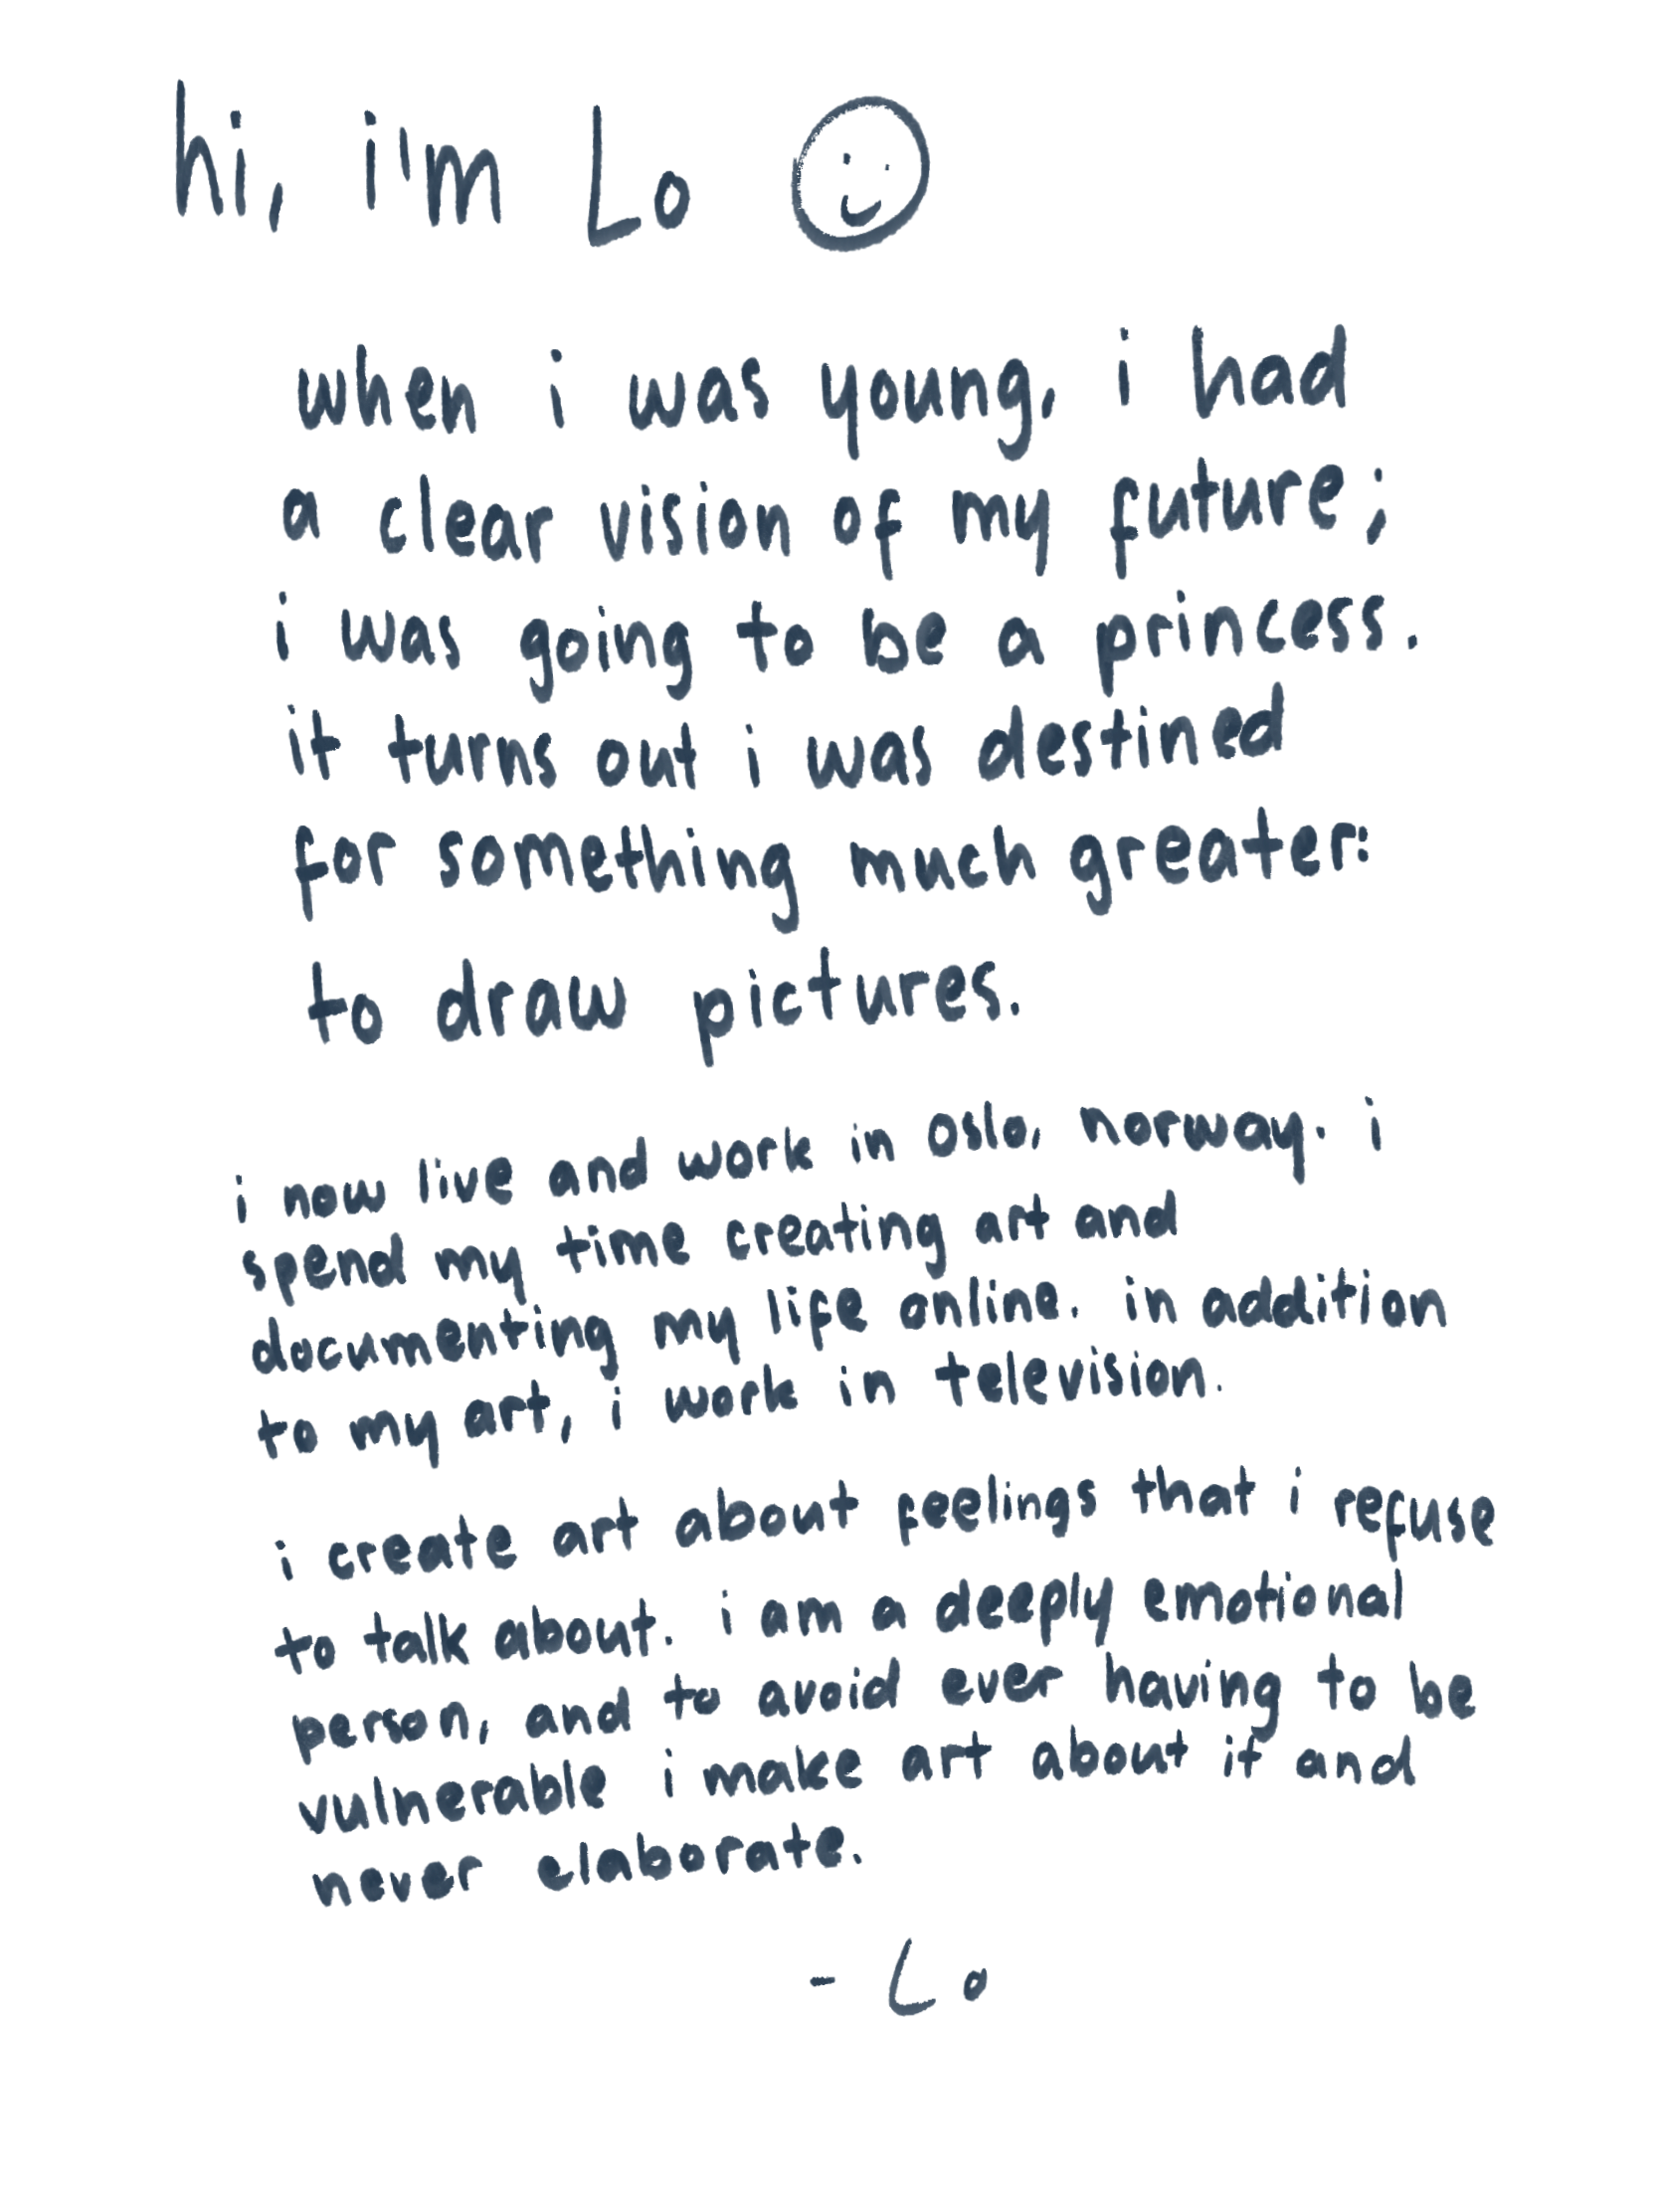 hi, i'm Lo
when i was young, i had
a clear vision of my future;
i was going to be a princess.
it turns out i was destined
for something much greater:
to draw pictures.
i now live and work in oslo, norway. i
spend my time creating art and
documenting my life online. in addition
to my art, i work in television.
i create art about feelings that i refuse
to talk about. i am a deeply emotional
person, and to avoid ever having to be
vulnerable i make art about it and
never elaborate.
- Lo